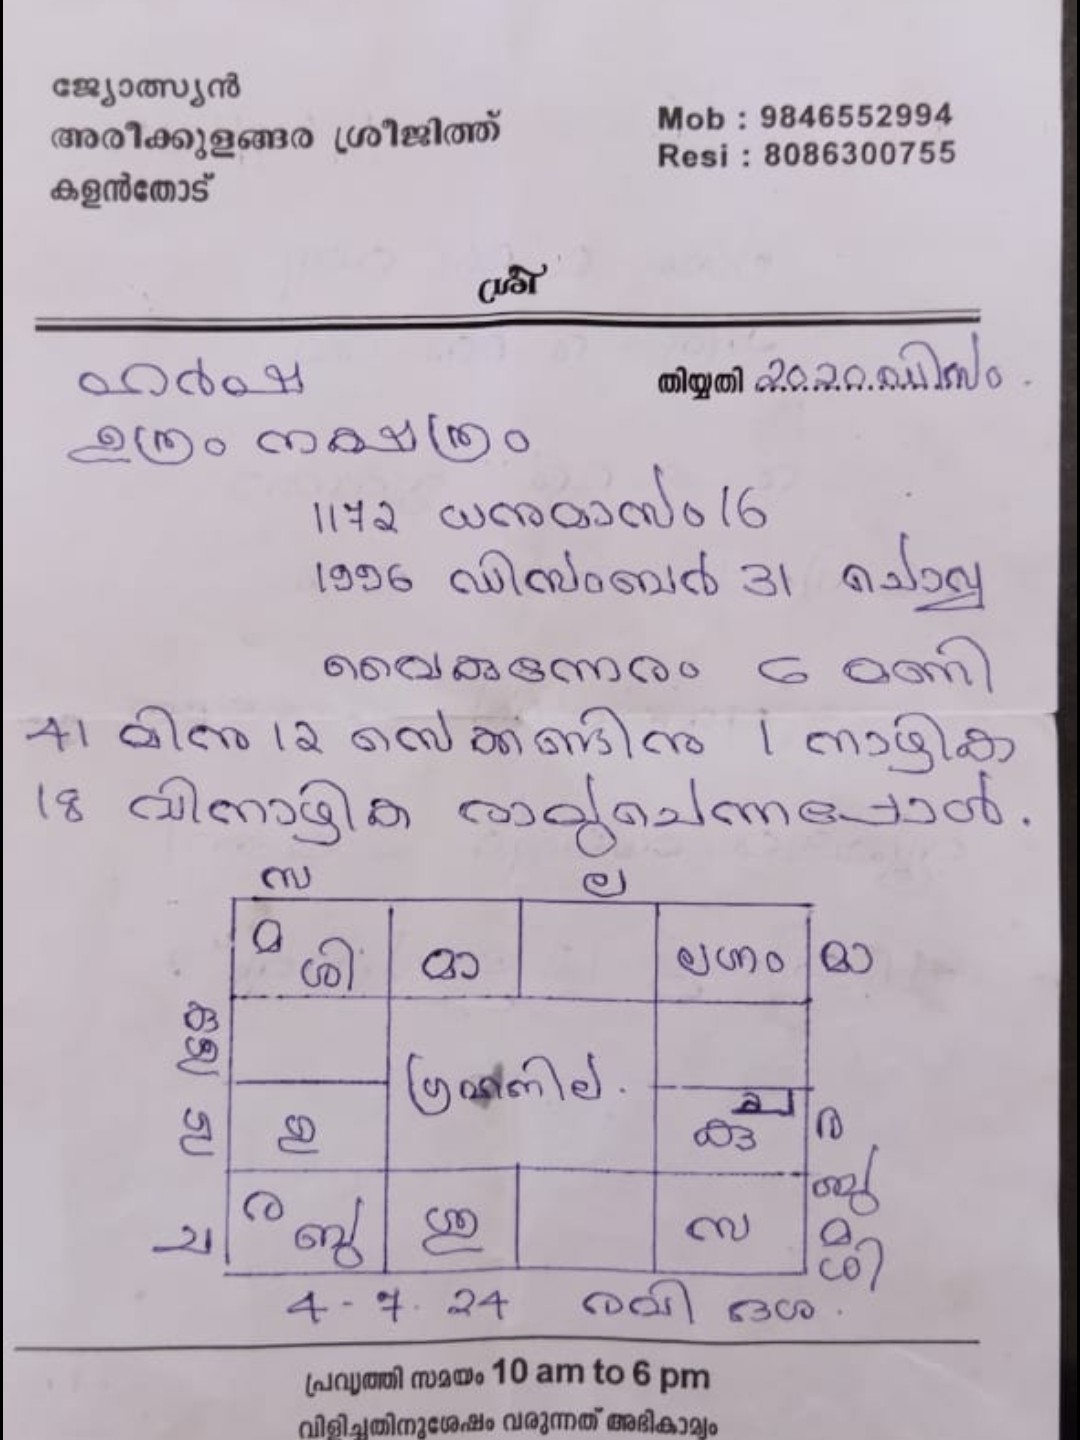 ജ്യോത്സ്യൻ
അരീക്കുളങ്ങര ശ്രീജിത്ത്
കളൻതോട്
Mob : 9846552994
Resi : 8086300755
ശ്രീ
ഹർഷ
തിയ്യതി 2020 ഡിസം
ഉത്രം നക്ഷത്രം
1172 ധനുമാസം 16
1996 ഡിസംബർ 31 ചൊവ്വ
വൈകുന്നേരം 6 മണി
41 മിനു 12 സെക്കണ്ടിനു 1 നാഴിക
18 വിനാഴിക രാവുചെന്നപ്പോൾ.
സ ല
മ ശി മാ ലഗ്നം മാ
ഗ്രഹനില.
ഗു കു ച ര
ബു
ര ബു ശു സ മ
ച ശി
4-7-24 രവി ദശ.
പ്രവൃത്തി സമയം 10 am to 6 pm
വിളിച്ചതിനുശേഷം വരുന്നത് അഭികാമ്യം